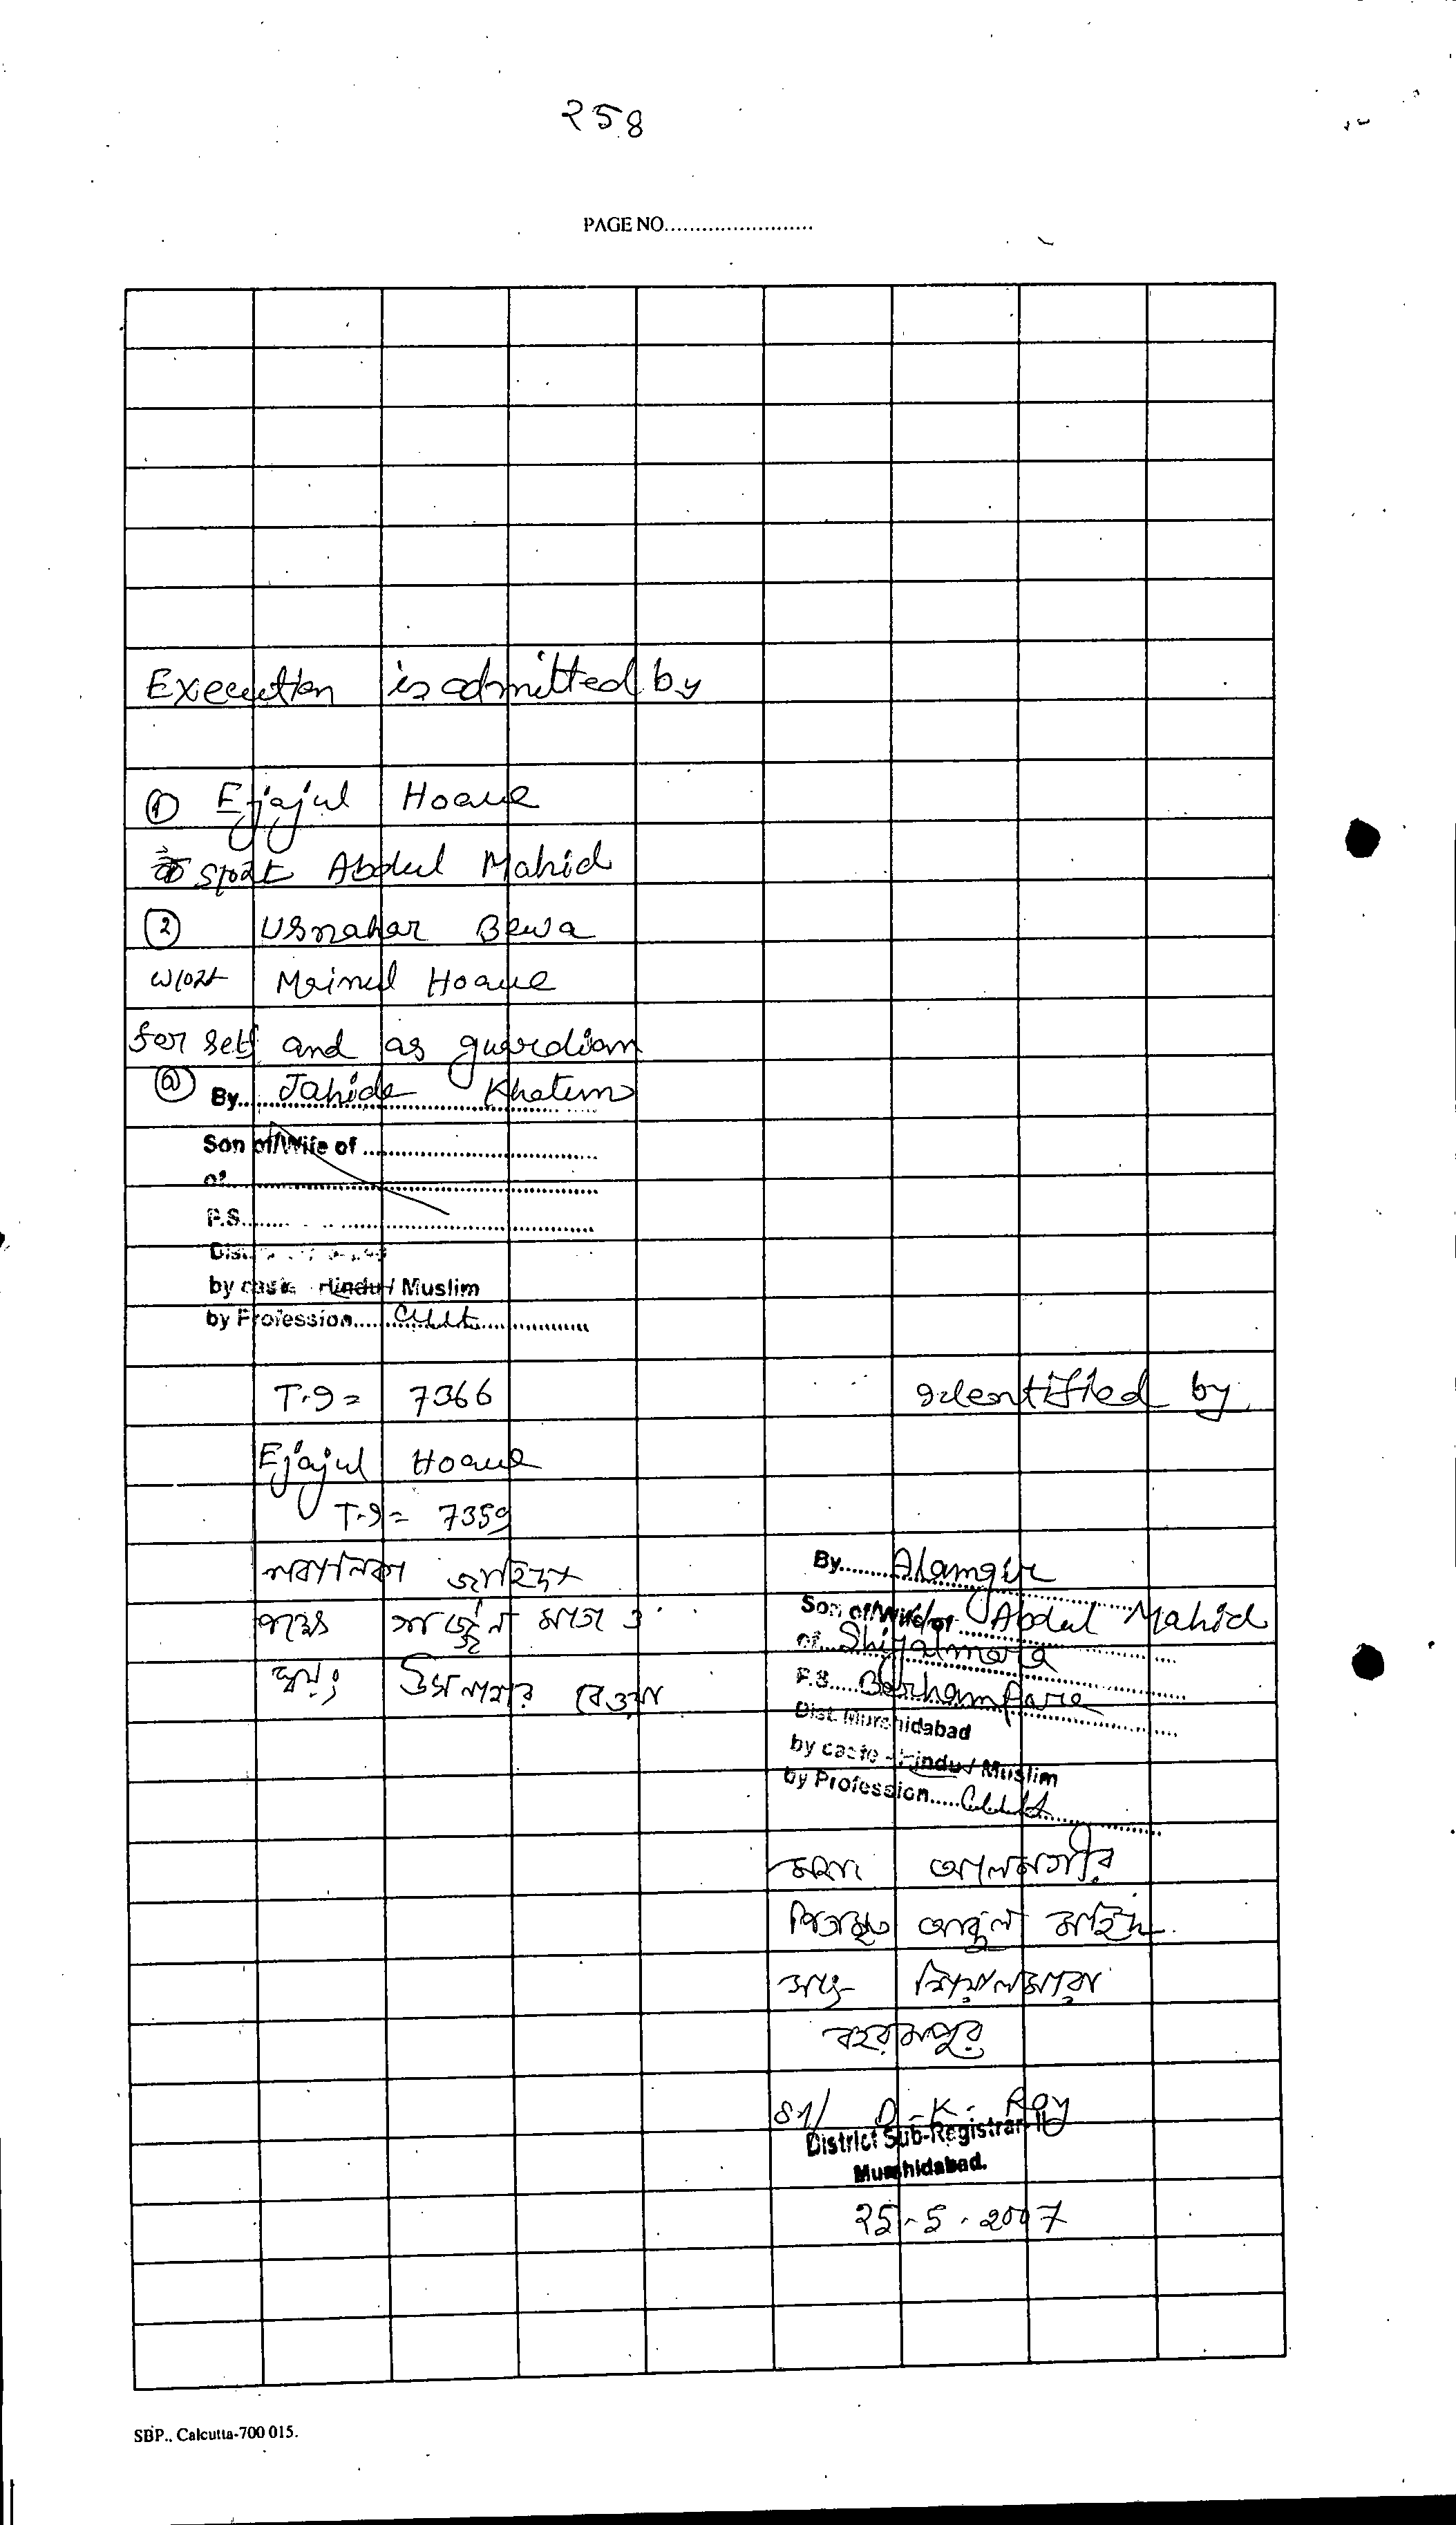 258
PAGE NO........................
Execution is admitted by
① Ejajul Hoque
Abdul Mahid
② Usnahar Bewa
Mainul Hoque
for self and as guardian
By Jahida Khatun
Son of/Wife of ........................
of........................
P.S........................
by caste Hindu / Muslim
by Profession Cult
T.9 = 7366
Ejajul Hoque
T.9 = 7359
নাবালিকা জাহিদা
পক্ষে গার্জেন মাতা ও
স্বয়ং উসনাহার বেওয়া
Identified by
By Alamgir
Son of/Wife of Abdul Mahid
of Shiyalmara
P.S. Berhampore
Dist. Murshidabad
by caste - Hindu / Muslim
by Profession Cult
মহঃ আলমগীর
পিতা মৃত আব্দুল মাহিদ
সাং শিয়ালমারা
বহরমপুর
Sd/ D.K. Roy
District Sub-Registrar-II
Murshidabad.
25-5-2007
SBP., Calcutta-700 015.